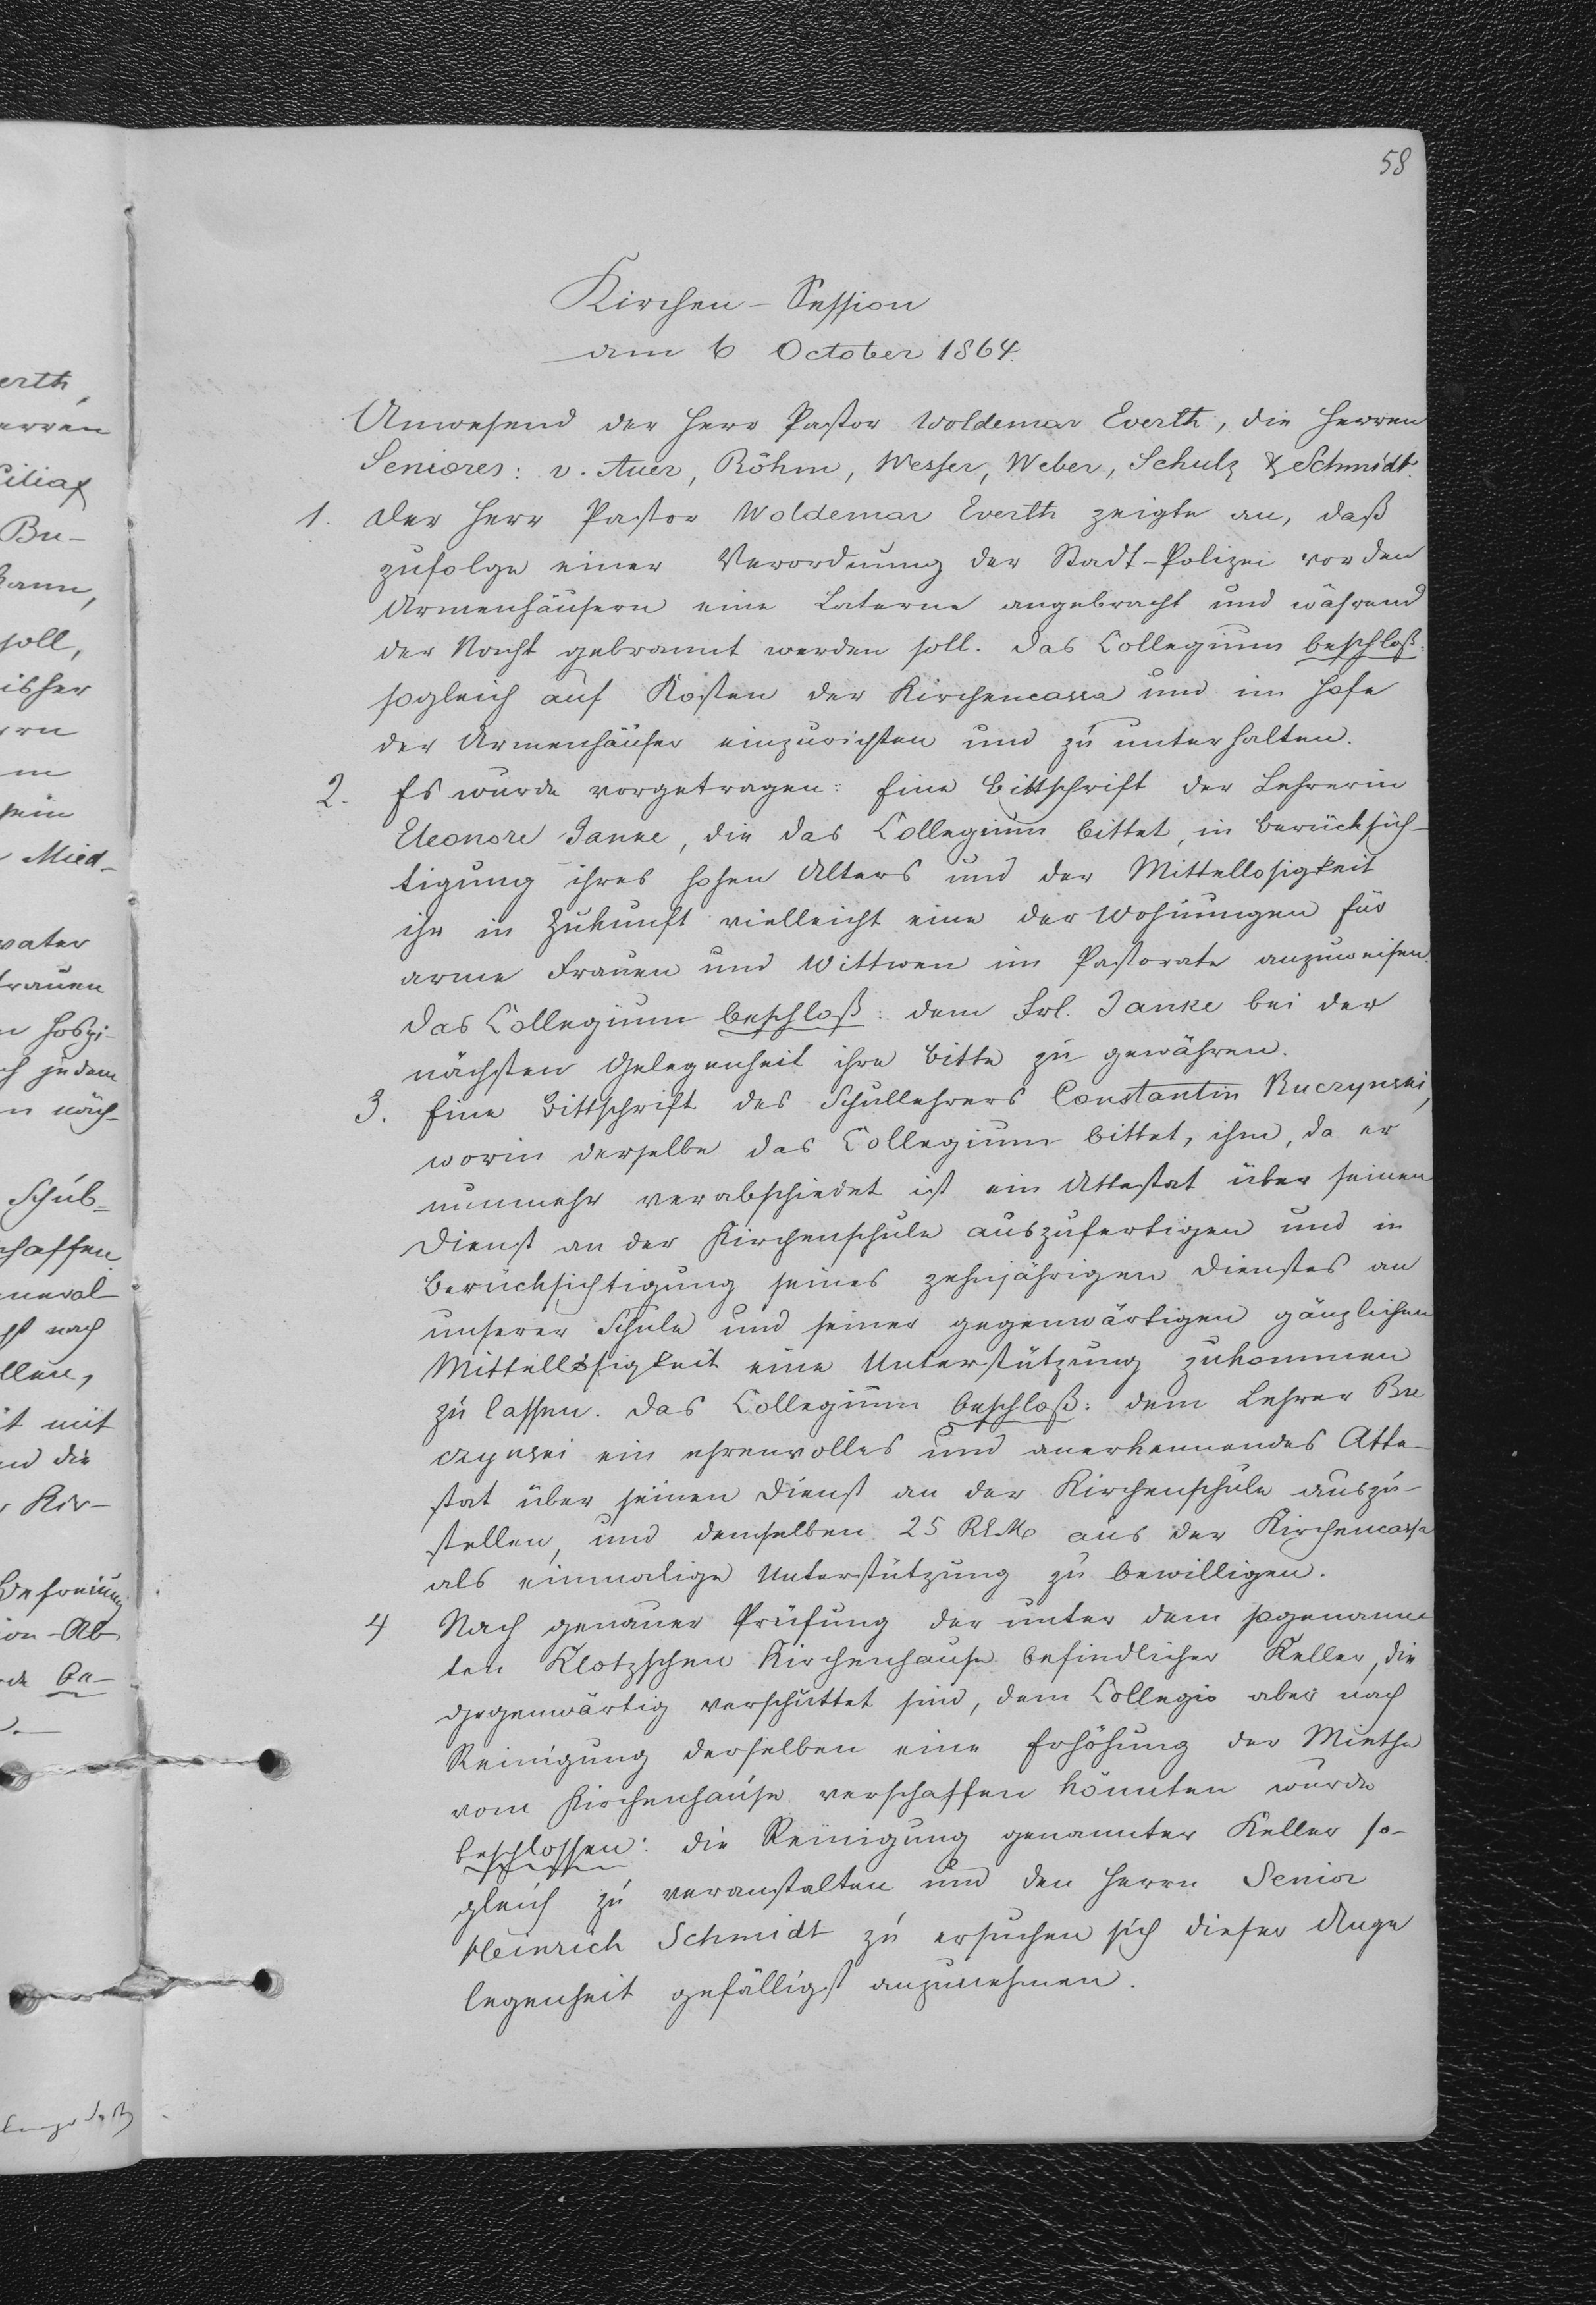 58
Kirchen-Session
am 6 October 1864.
Anwesend der Herr Pastor Woldemar Everth, die Herren
Seniores: v. Auer, Böhm, Messer, Weber, Schulz & Schmidt.
1. Der Herr Pastor Woldemar Everth zeigte an, daß
zufolge einer Verordnung der Stadt-Polizei vor den
Armenhäusern eine Laterne angebracht und während
der Nacht gebrannt werden soll. Das Collegium beschloß:
sogleich auf Kosten der Kirchencassa und im Hofe
der Armenhäuser einzurichten und zu unterhalten.
2. Es wurde vorgetragen: Eine Bittschrift der Lehrerin
Eleonore Janke, die das Collegium bittet, in Berücksich-
tigung ihres hohen Alters und der Mittellosigkeit
ihr in Zukunft vielleicht eine der Wohnungen für
arme Frauen und Wittwen im Pastorate anzuweisen.
Das Collegium beschloß: dem Frl. Janke bei der
nächsten Gelegenheit ihre Bitte zu gewähren.
3. Eine Bittschrift des Schullehrers Constantin Buczynski,
worin derselbe das Collegium bittet, ihm, da er
nunmehr verabschiedet ist ein Attestat über seinen
Dienst an der Kirchenschule auszufertigen und in
Berücksichtigung seines zehnjährigen Dienstes an
unserer Schule und seiner gegenwärtigen gänzlichen
Mittellosigkeit eine Unterstützung zukommen
zu lassen. Das Collegium beschloß: dem Lehrer Bu
czynski ein ehrenvolles und anerkennendes Atte-
stat über seinen Dienst an der Kirchenschule auszu-
stellen, und demselben 25 aus der Kirchencassa
als einmalige Unterstützung zu bewilligen.
4 Nach genauer Prüfung der unter dem sogenann
ten Klotzschen Kirchenhause befindlicher Keller, die
gegenwärtig verschüttet sind, dem Collegio aber nach
Reinigung derselben eine Erhöhung der Miethe
vom Kirchenhause verschaffen könnten wurde
beschlossen: die Reinigung genannter Keller so-
gleich zu veranstalten und den Herrn Senior
Heinrich Schmidt zu ersuchen sich dieser Ange
legenheit gefälligst anzunehmen.